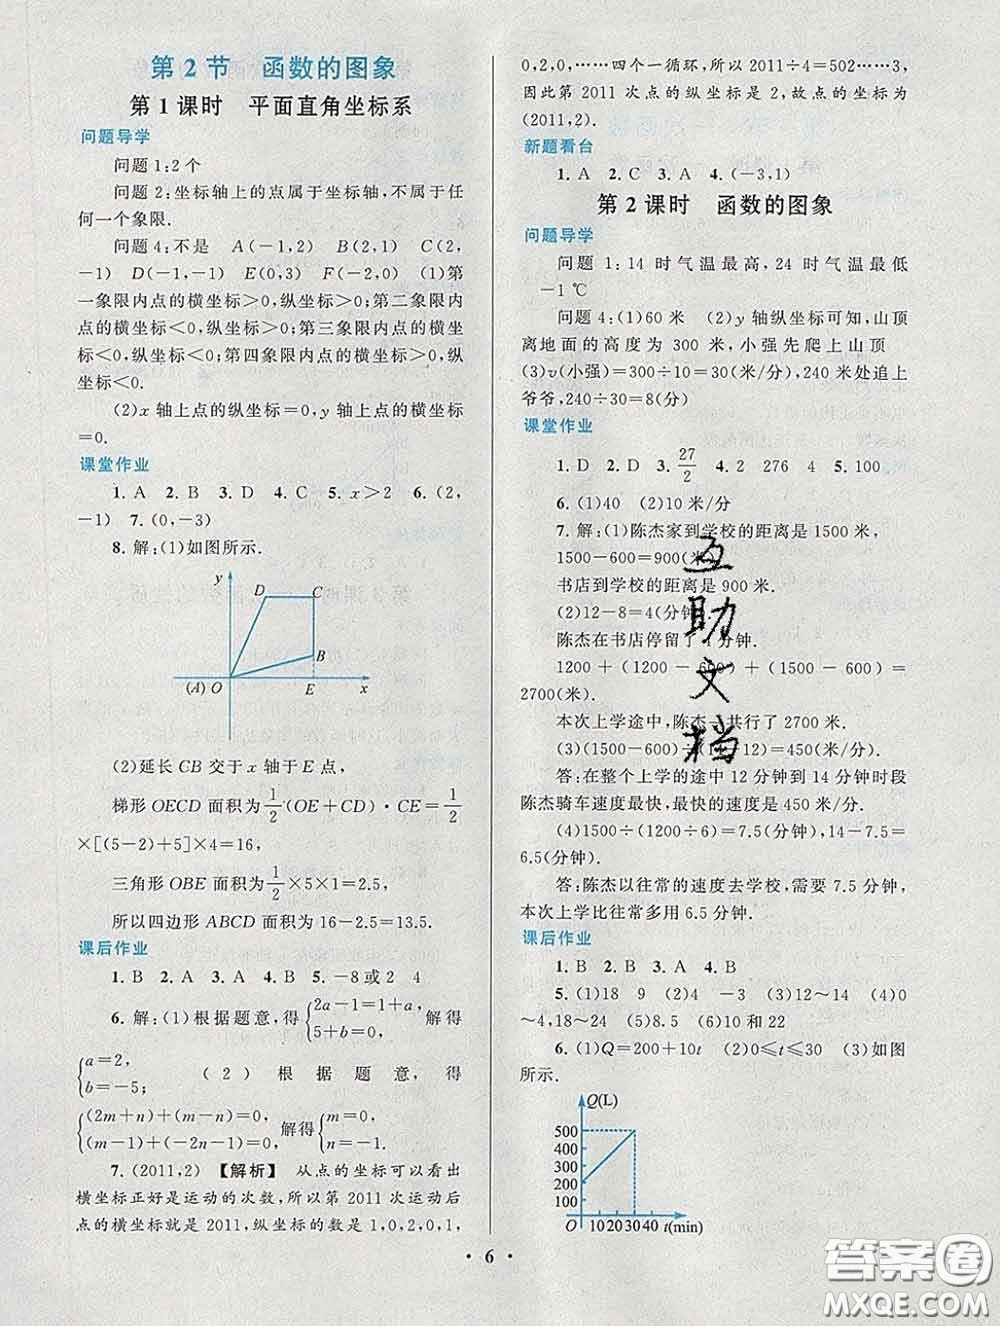 第2节　函数的图象
第1课时　平面直角坐标系
问题导学
问题1:2个
问题2:坐标轴上的点属于坐标轴,不属于任
何一个象限.
问题4:不是　A(-1,2)　B(2,1)　C(2,
-1)　D(-1,-1)　E(0,3)　F(-2,0)　(1)第
一象限内点的横坐标>0,纵坐标>0;第二象限内
点的横坐标<0,纵坐标>0;第三象限内点的横坐
标<0,纵坐标<0;第四象限内点的横坐标>0,纵
坐标<0.
(2)x轴上点的纵坐标=0,y轴上点的横坐标
=0.
课堂作业
1. A　2. B　3. D　4. C　5. x>2　6. (2,
-1)　7. (0,-3)
8. 解:(1)如图所示.
y
D
C
B
(A)
O
E
x
(2)延长CB交于x轴于E点,
梯形OECD面积为1/2·(OE+CD)·CE=1/2
×[(5-2)+5]×4=16,
三角形OBE面积为1/2×5×1=2.5,
所以四边形ABCD面积为16-2.5=13.5.
课后作业
1. B　2. A　3. A　4. B　5. -8或2　4
6. 解:(1)根据题意,得{2a-1=1+a, 5+b=0; 解得
{a=2, b=-5;　(2)根据题意,得
{(2m+n)+(m-n)=0, (m-1)+(-2n-1)=0, 解得{m=0, n=-1.
7. (2011,2)　【解析】　从点的坐标可以看出
横坐标正好是运动的次数,所以第2011次运动后
点的横坐标就是2011,纵坐标的数是1,0,2,0,1,
0,2,0,……四个一循环,所以2011÷4=502……3,
因此第2011次点的纵坐标是2,故点的坐标为
(2011,2).
新题看台
1. A　2. C　3. A　4. (-3,1)
第2课时　函数的图象
问题导学
问题1:14时气温最高,24时气温最低
-1℃
问题4:(1)60米　(2)y轴纵坐标可知,山顶
离地面的高度为300米,小强先爬上山顶
(3)v(小强)=300÷10=30(米/分),240米处追上
爷爷,240÷30=8(分)
课堂作业
1. D　2. D　3. 27/2　4. 2　276　4　5. 100
6. (1)40　(2)10米/分
7. 解:(1)陈杰家到学校的距离是1500米,
1500-600=900(米)
书店到学校的距离是900米.
(2)12-8=4(分钟)
陈杰在书店停留了4分钟.
1200+(1200-600)+(1500-600)=
2700(米).
本次上学途中,陈杰一共行了2700米.
(3)(1500-600)÷(14-12)=450(米/分)
答:在整个上学的途中12分钟到14分钟时段
陈杰骑车速度最快,最快的速度是450米/分.
(4)1500÷(1200÷6)=7.5(分钟),14-7.5=
6.5(分钟).
答:陈杰以往常的速度去学校,需要7.5分钟,
本次上学比往常多用6.5分钟.
课后作业
1. B　2. A　3. A　4. B
5. (1)18　9　(2)4　-3　(3)12～14　(4)0
～4,18～24　(5)8.5　(6)10和22
6. (1)Q=200+10t　(2)0≤t≤30　(3)如图
所示.
Q(L)
500
400
300
200
100
O　10 20 30 40　t(min)
互助文档
· 6 ·
答案圈
MXQE.COM